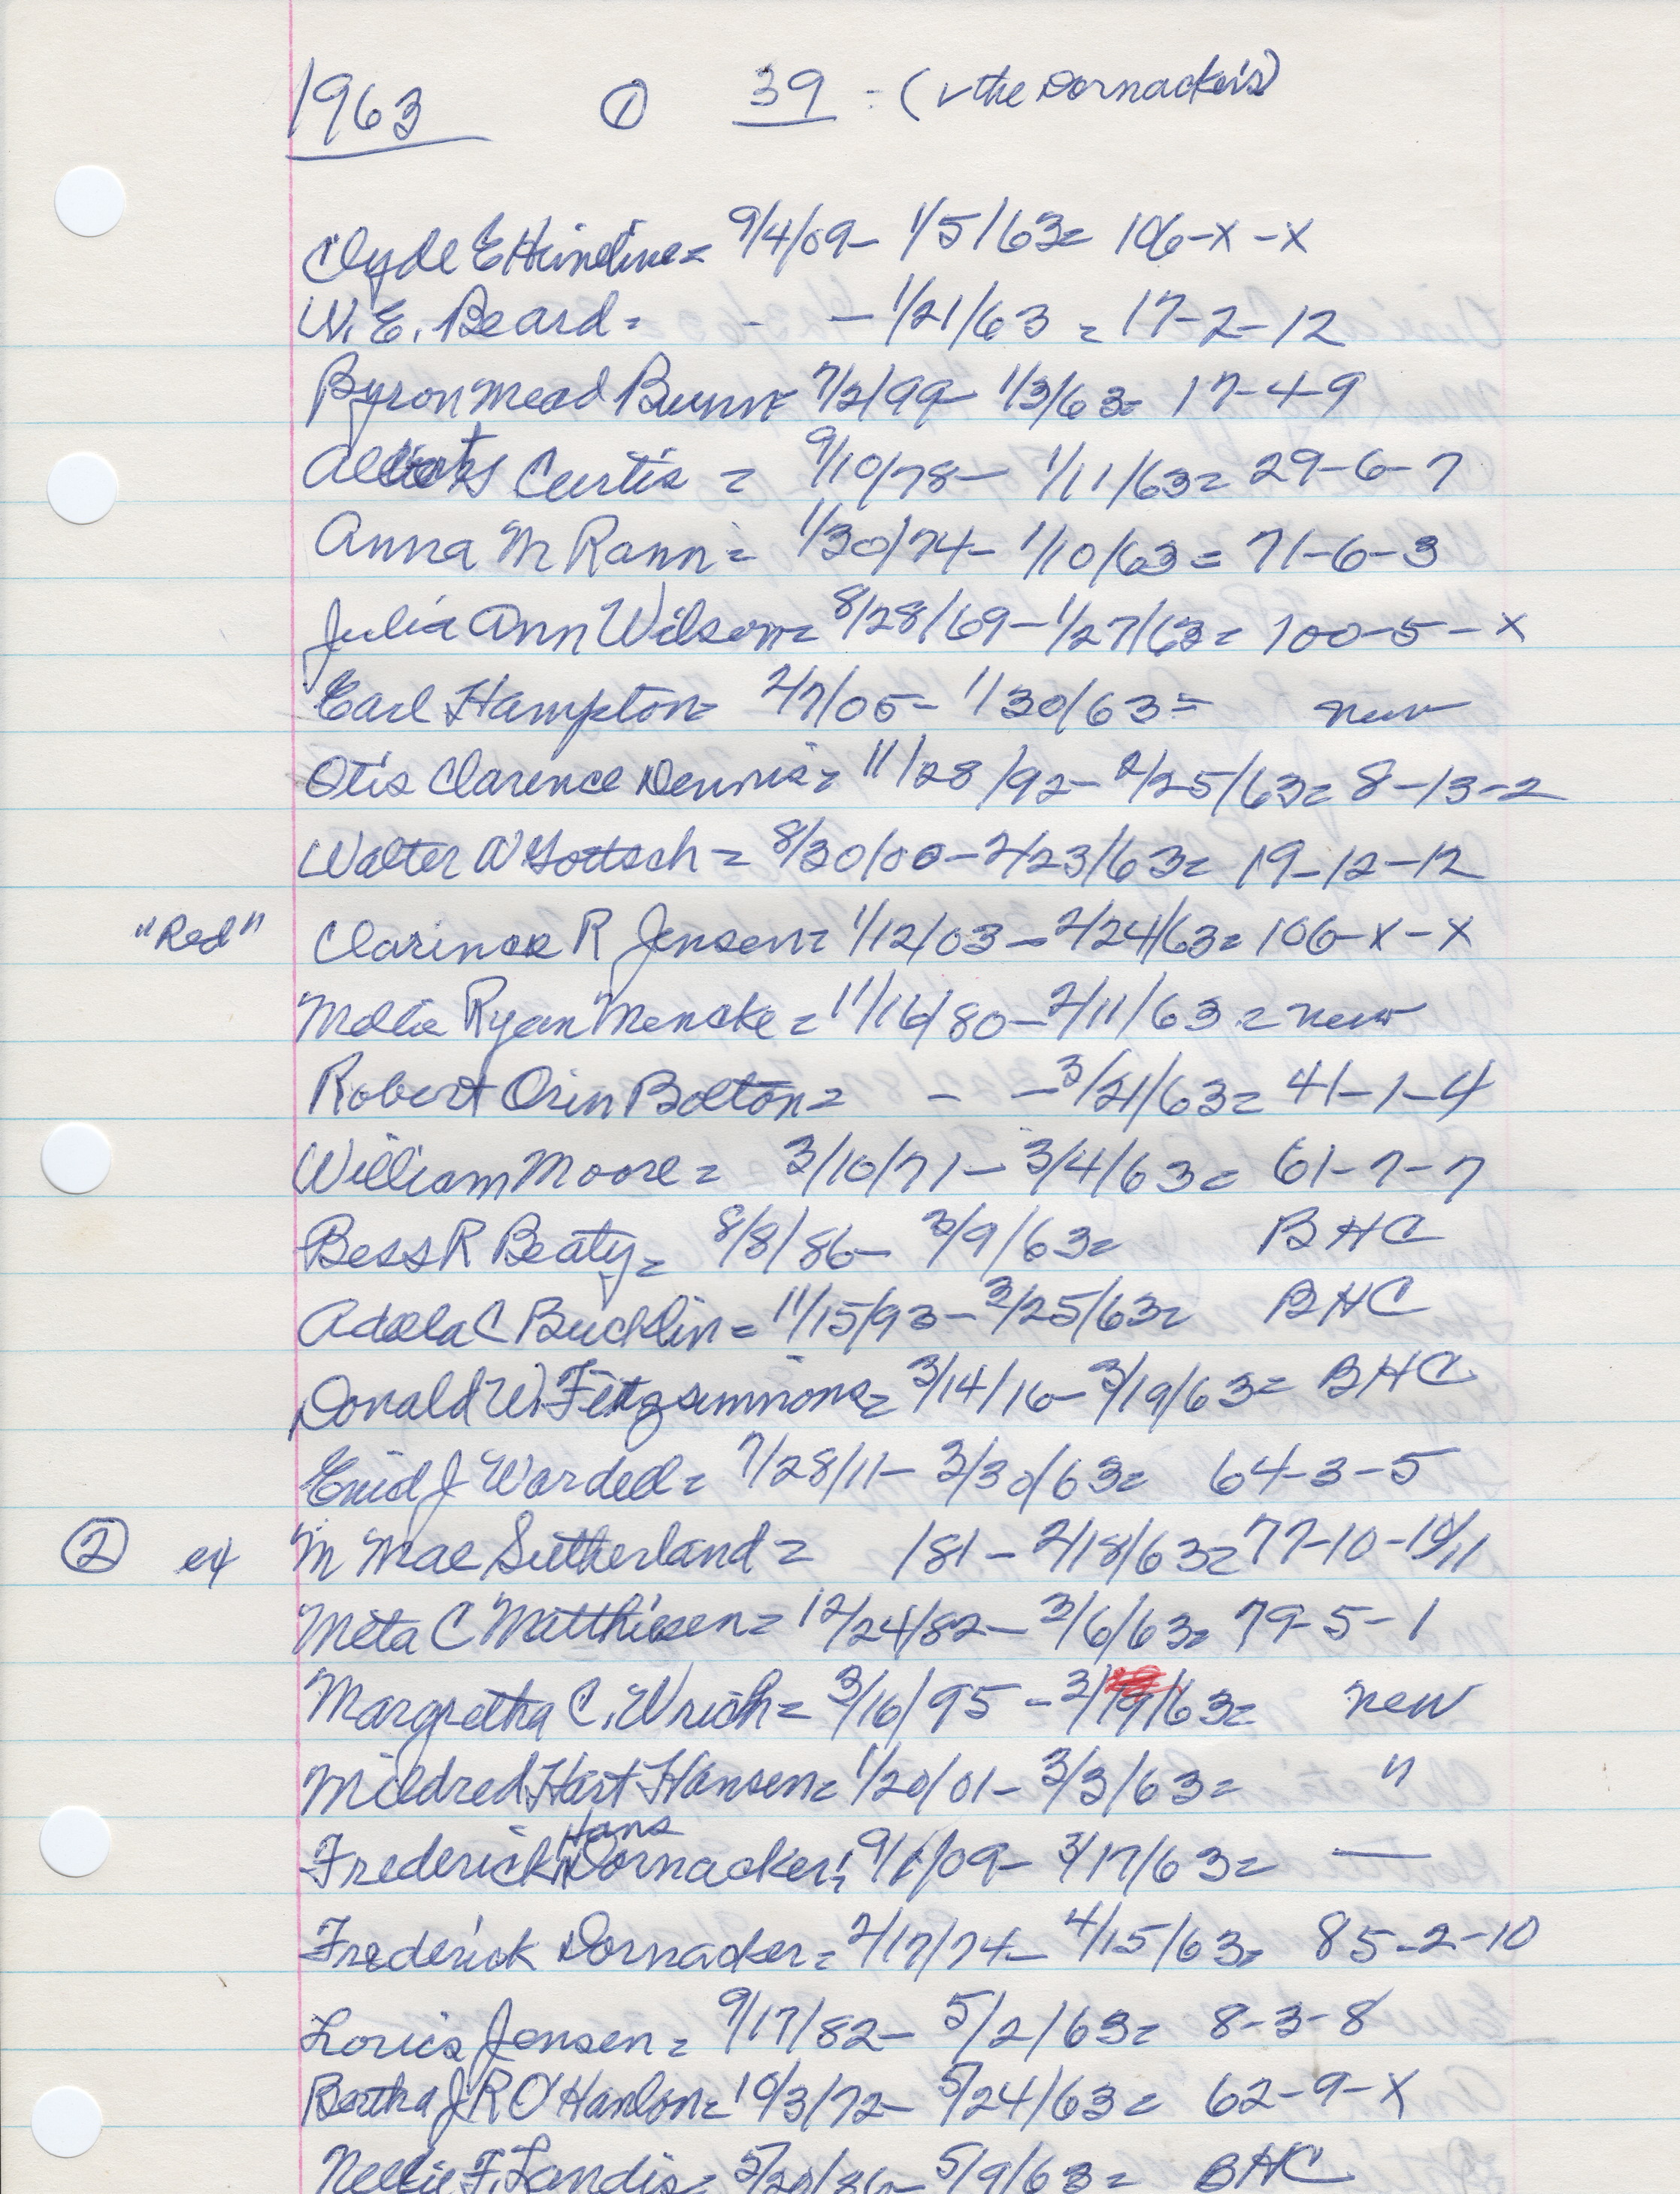 1963 ① 39 - (v the Dornacker's)
Clyde E Hineline = 9/4/09 - 1/5/63 = 106-X-X
W. E. Beard = - - 1/21/63 = 17-2-12
Byron Mead Bunn = 7/2/99 - 1/3/63 = 17-4-9
Curtis = 9/10/78 - 1/11/63 = 29-6-7
Anna M Rann = 1/30/74 - 1/10/63 = 71-6-3
Julia Ann Wilson = 8/28/69 - 1/27/63 = 100-5-X
Earl Hampton = 2/7/05 - 1/30/63 = new
Otis Clarence Dennis = 11/28/92 - 2/25/63 = 8-13-2
Walter W Gottsch = 8/30/00 - 2/23/63 = 19-12-12
"Red" Clarince R Jensen = 1/12/03 - 2/24/63 = 106-X-X
Mollie Ryan Mencke = 11/16/80 - 2/11/63 = new
Robert Orin Bolton = - - 3/21/63 = 41-1-4
William Moore = 3/10/71 - 3/4/63 = 61-7-7
Bess R Beaty = 8/8/86 - 3/9/63 = BHC
Adela C Bucklin = 11/15/93 - 3/25/63 = BHC
Donald W. Fitzsimmons = 3/14/16 - 3/19/63 = BHC
Enid J Wardell = 7/28/11 - 3/30/63 = 64-3-5
② ex M Mae Sutherland = /81 - 2/18/63 = 77-10-10/11
Meta C Matthiesen = 12/24/82 - 3/6/63 = 79-5-1
Margretha C. Wrich = 3/16/95 - 3/19/63 = new
Mildred Hart Hansen = 1/20/01 - 3/3/63 = "
Hans
Frederick H Dornacker = 9/1/09 - 3/17/63 = —
Frederick Dornacker = 2/17/74 - 4/15/63 = 85-2-10
Louis Jensen = 9/17/82 - 5/2/63 = 8-3-8
Bertha J R O'Hanlon = 10/3/72 - 5/24/63 = 62-9-X
Nellie F. Landis = 5/20/86 - 5/9/63 = BHC